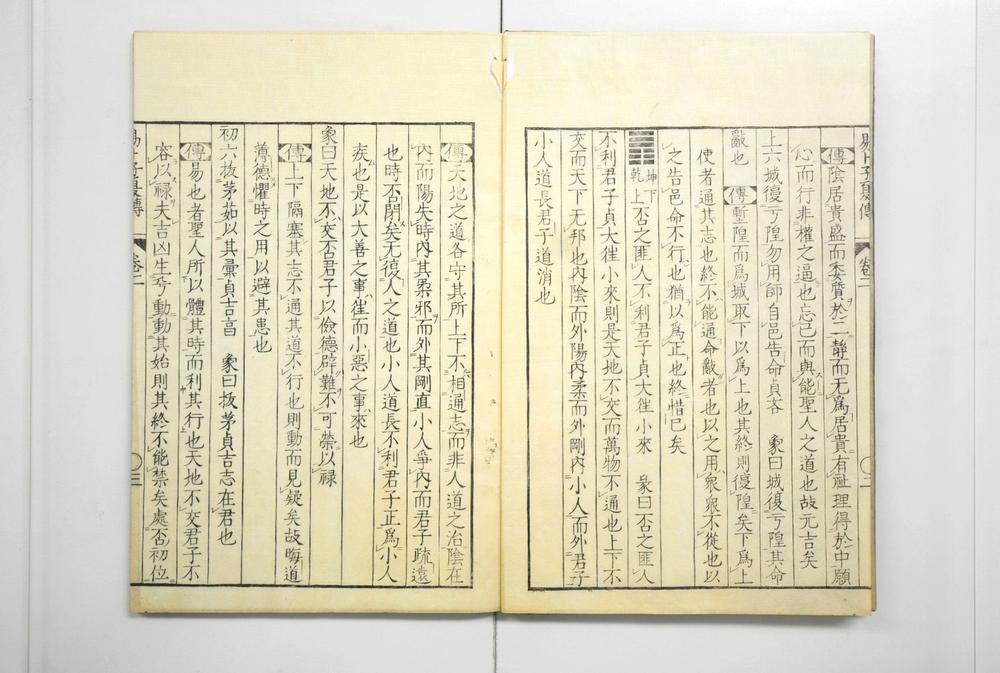 傳陰居貴盛而委質於二靜而无爲居貴有祉理得於中願
心而行非權之逼也忘己而與能聖人之道也故元吉矣
上六城復于隍勿用師自邑告命貞吝 象曰城復于隍其命
亂也 傳塹隍而爲城取下以爲上也其終則復隍矣下爲上
使者通其志也終不能通命亂者也以之用衆衆不從也以
之告邑命不行也猶以爲正也終惜已矣
坤下乾上否之匪人不利君子貞大徃小來 彖曰否之匪人
不利君子貞大徃小來則是天地不交而萬物不通也上下不
交而天下无邦也內陰而外陽內柔而外剛內小人而外君子
小人道長君子道消也
易卜子夏傳 卷二 二
傳天地之道各守其所上下不相通志而非人道之治陰在
內而陽失時內其柔邪而外其剛直小人爭內而君子疏遠
也時否閉矣无復人之道也小人道長不利君子正爲小人
疾也是以大善之事徃而小惡之事來也
象曰天地不交否君子以儉德辟難不可榮以祿
傳上下隔塞其志不通其道不行也則動而見疑矣故晦道
薄德懼時之用以避其患也
初六拔茅茹以其彙貞吉亨 象曰拔茅貞吉志在君也
傳易也者聖人所以體其時而利其行也天地不交君子不
容以祿夫吉凶生乎動動其始則其終不能禁矣處否初位
易卜子夏傳 卷二 三